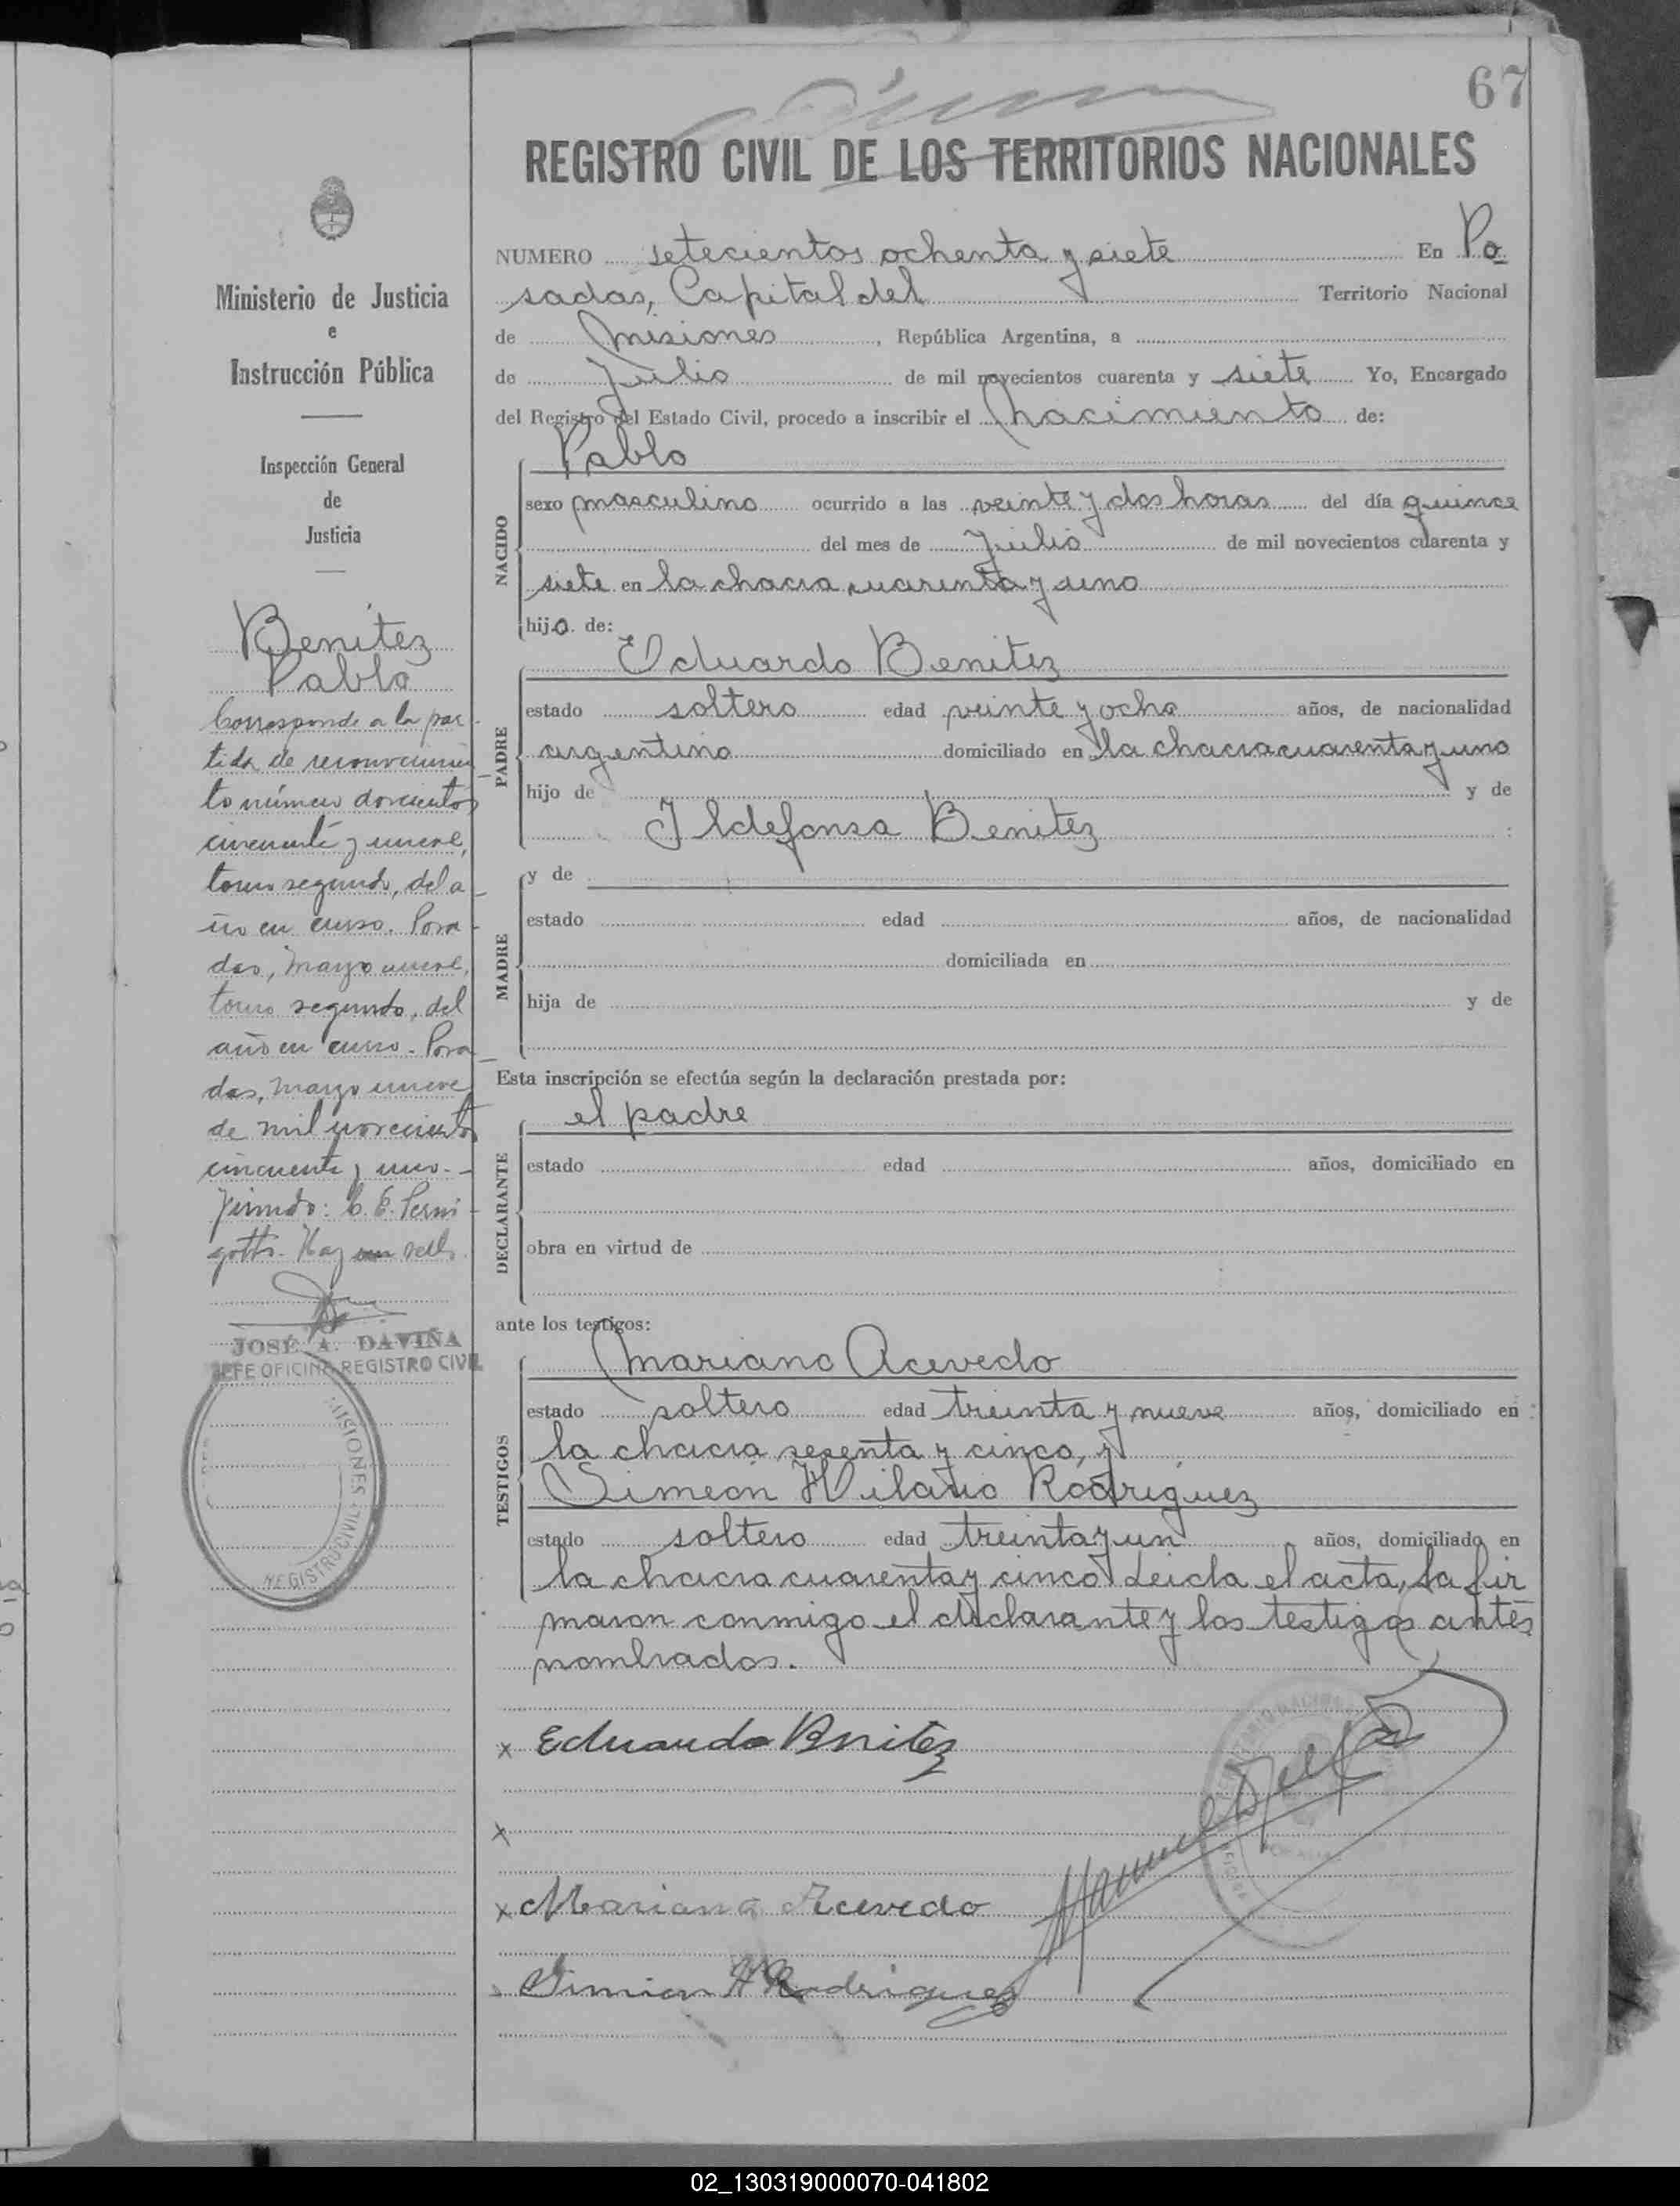 67
REGISTRO CIVIL DE LOS TERRITORIOS NACIONALES
NUMERO setecientos ochenta y siete En Po
sadas, Capital del Territorio Nacional
de Misiones, República Argentina, a
de Julio de mil novecientos cuarenta y siete Yo, Encargado
del Registro del Estado Civil, procedo a inscribir el nacimiento de:
NACIDO
Pablo
sexo masculino ocurrido a las veinte y dos horas del día quince
del mes de Julio de mil novecientos cuarenta y
siete en la chacra cuarenta y uno
hijo de:
PADRE
Eduardo Benitez
estado soltero edad veinte y ocho años, de nacionalidad
argentina domiciliado en la chacra cuarenta y uno
hijo de y de
Ildefonsa Benitez
MADRE
y de
estado edad años, de nacionalidad
domiciliada en
hija de y de
Esta inscripción se efectúa según la declaración prestada por:
DECLARANTE
el padre
estado edad años, domiciliado en
obra en virtud de
ante los testigos:
TESTIGOS
Mariano Acevedo
estado soltero edad treinta y nueve años, domiciliado en
la chacra sesenta y cinco, y
Simeón Hilario Rodriguez
estado soltero edad treinta y un años, domiciliado en
la chacra cuarenta y cinco Leida el acta, la fir
maron conmigo el declarante y los testigos antes
nombrados.
x Eduardo Bnitez
x
x Mariano Acevedo
Simion H Rodriguez
Ministerio de Justicia
e
Instrucción Pública
Inspección General
de
Justicia
Benitez
Pablo
Corresponde a la par-
tida de reconocimien-
to número doscientos
cincuenta y nueve,
tomo segundo, del a-
ño en curso. Posa-
das, Marzo nueve,
tomo segundo, del
año en curso. Posa-
das, Marzo nueve
de mil novecientos
cincuenta y uno.-
Firmado: C. E. Perni-
gotti. Hay un sello.
JOSÉ A. DAVIÑA
JEFE OFICINA REGISTRO CIVIL
MISIONES
REGISTRO CIVIL
02_130319000070-041802